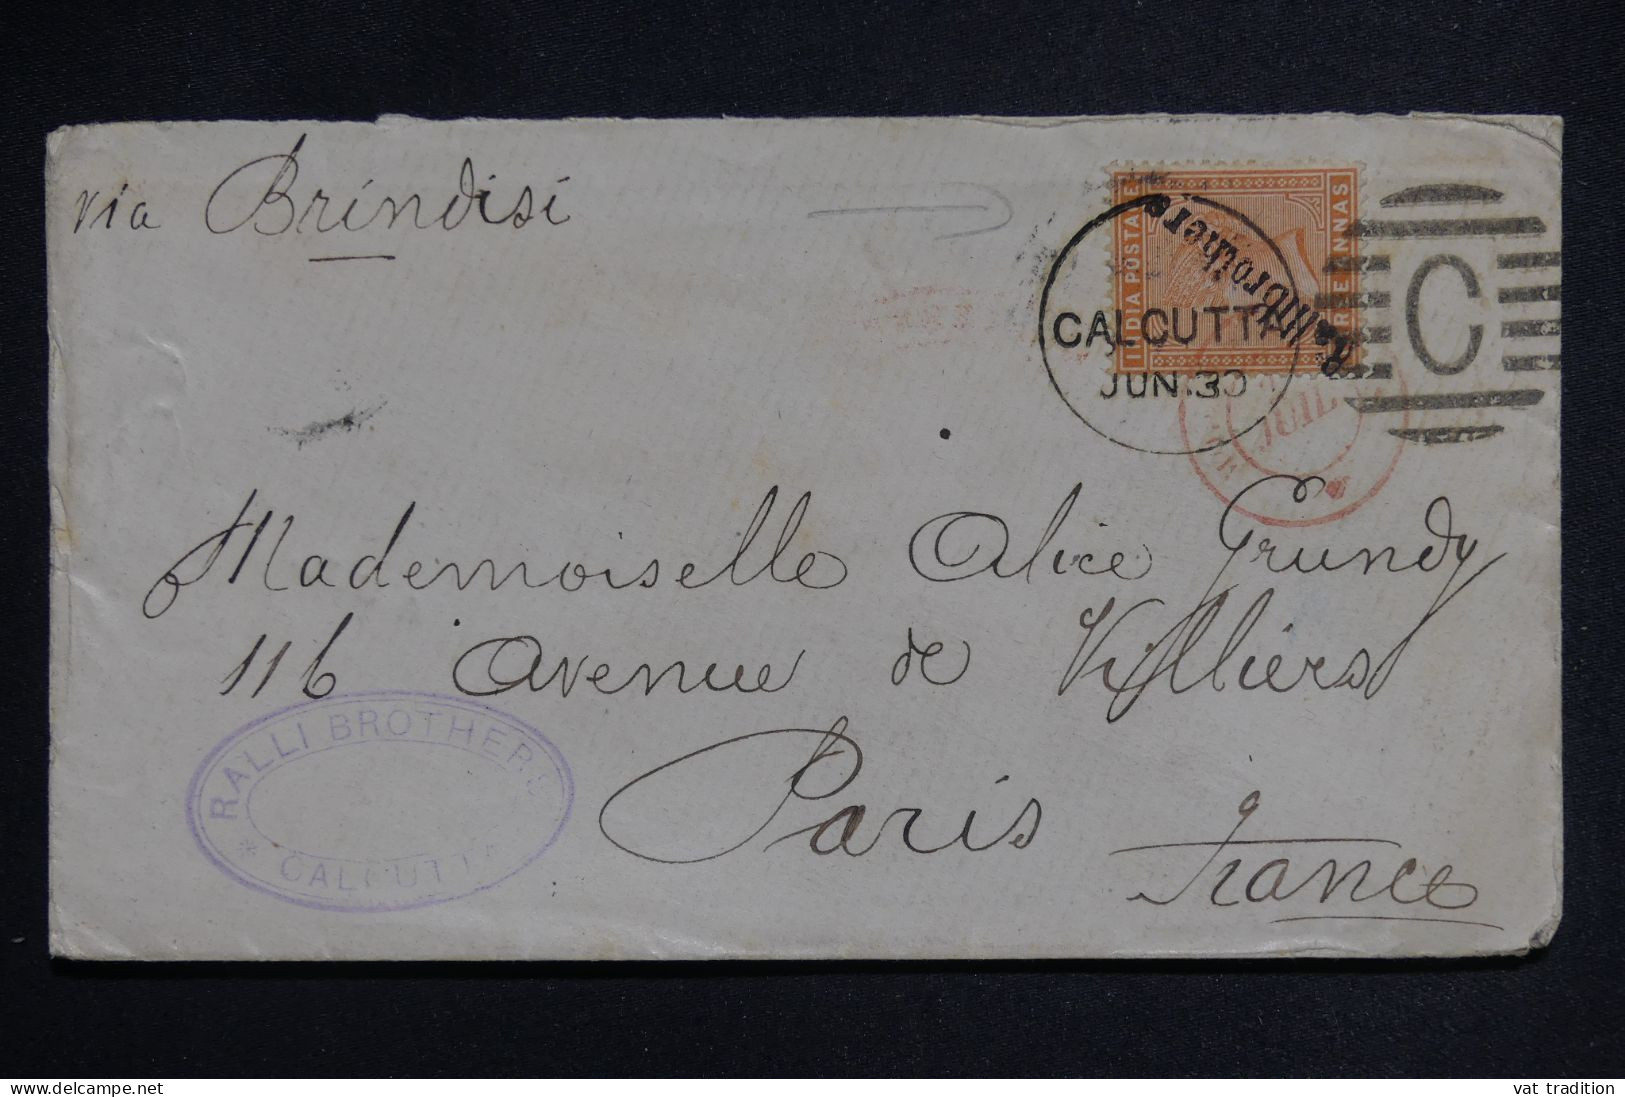 via Brindisi
INDIA POSTAGE
Ralli Brothers
CALCUTTA
JUN.30
C
Mademoiselle Alice Grundy
116 Avenue de Villiers
Paris
France
RALLI BROTHERS
* CALCUTTA
www.delcampe.net
vat tradition